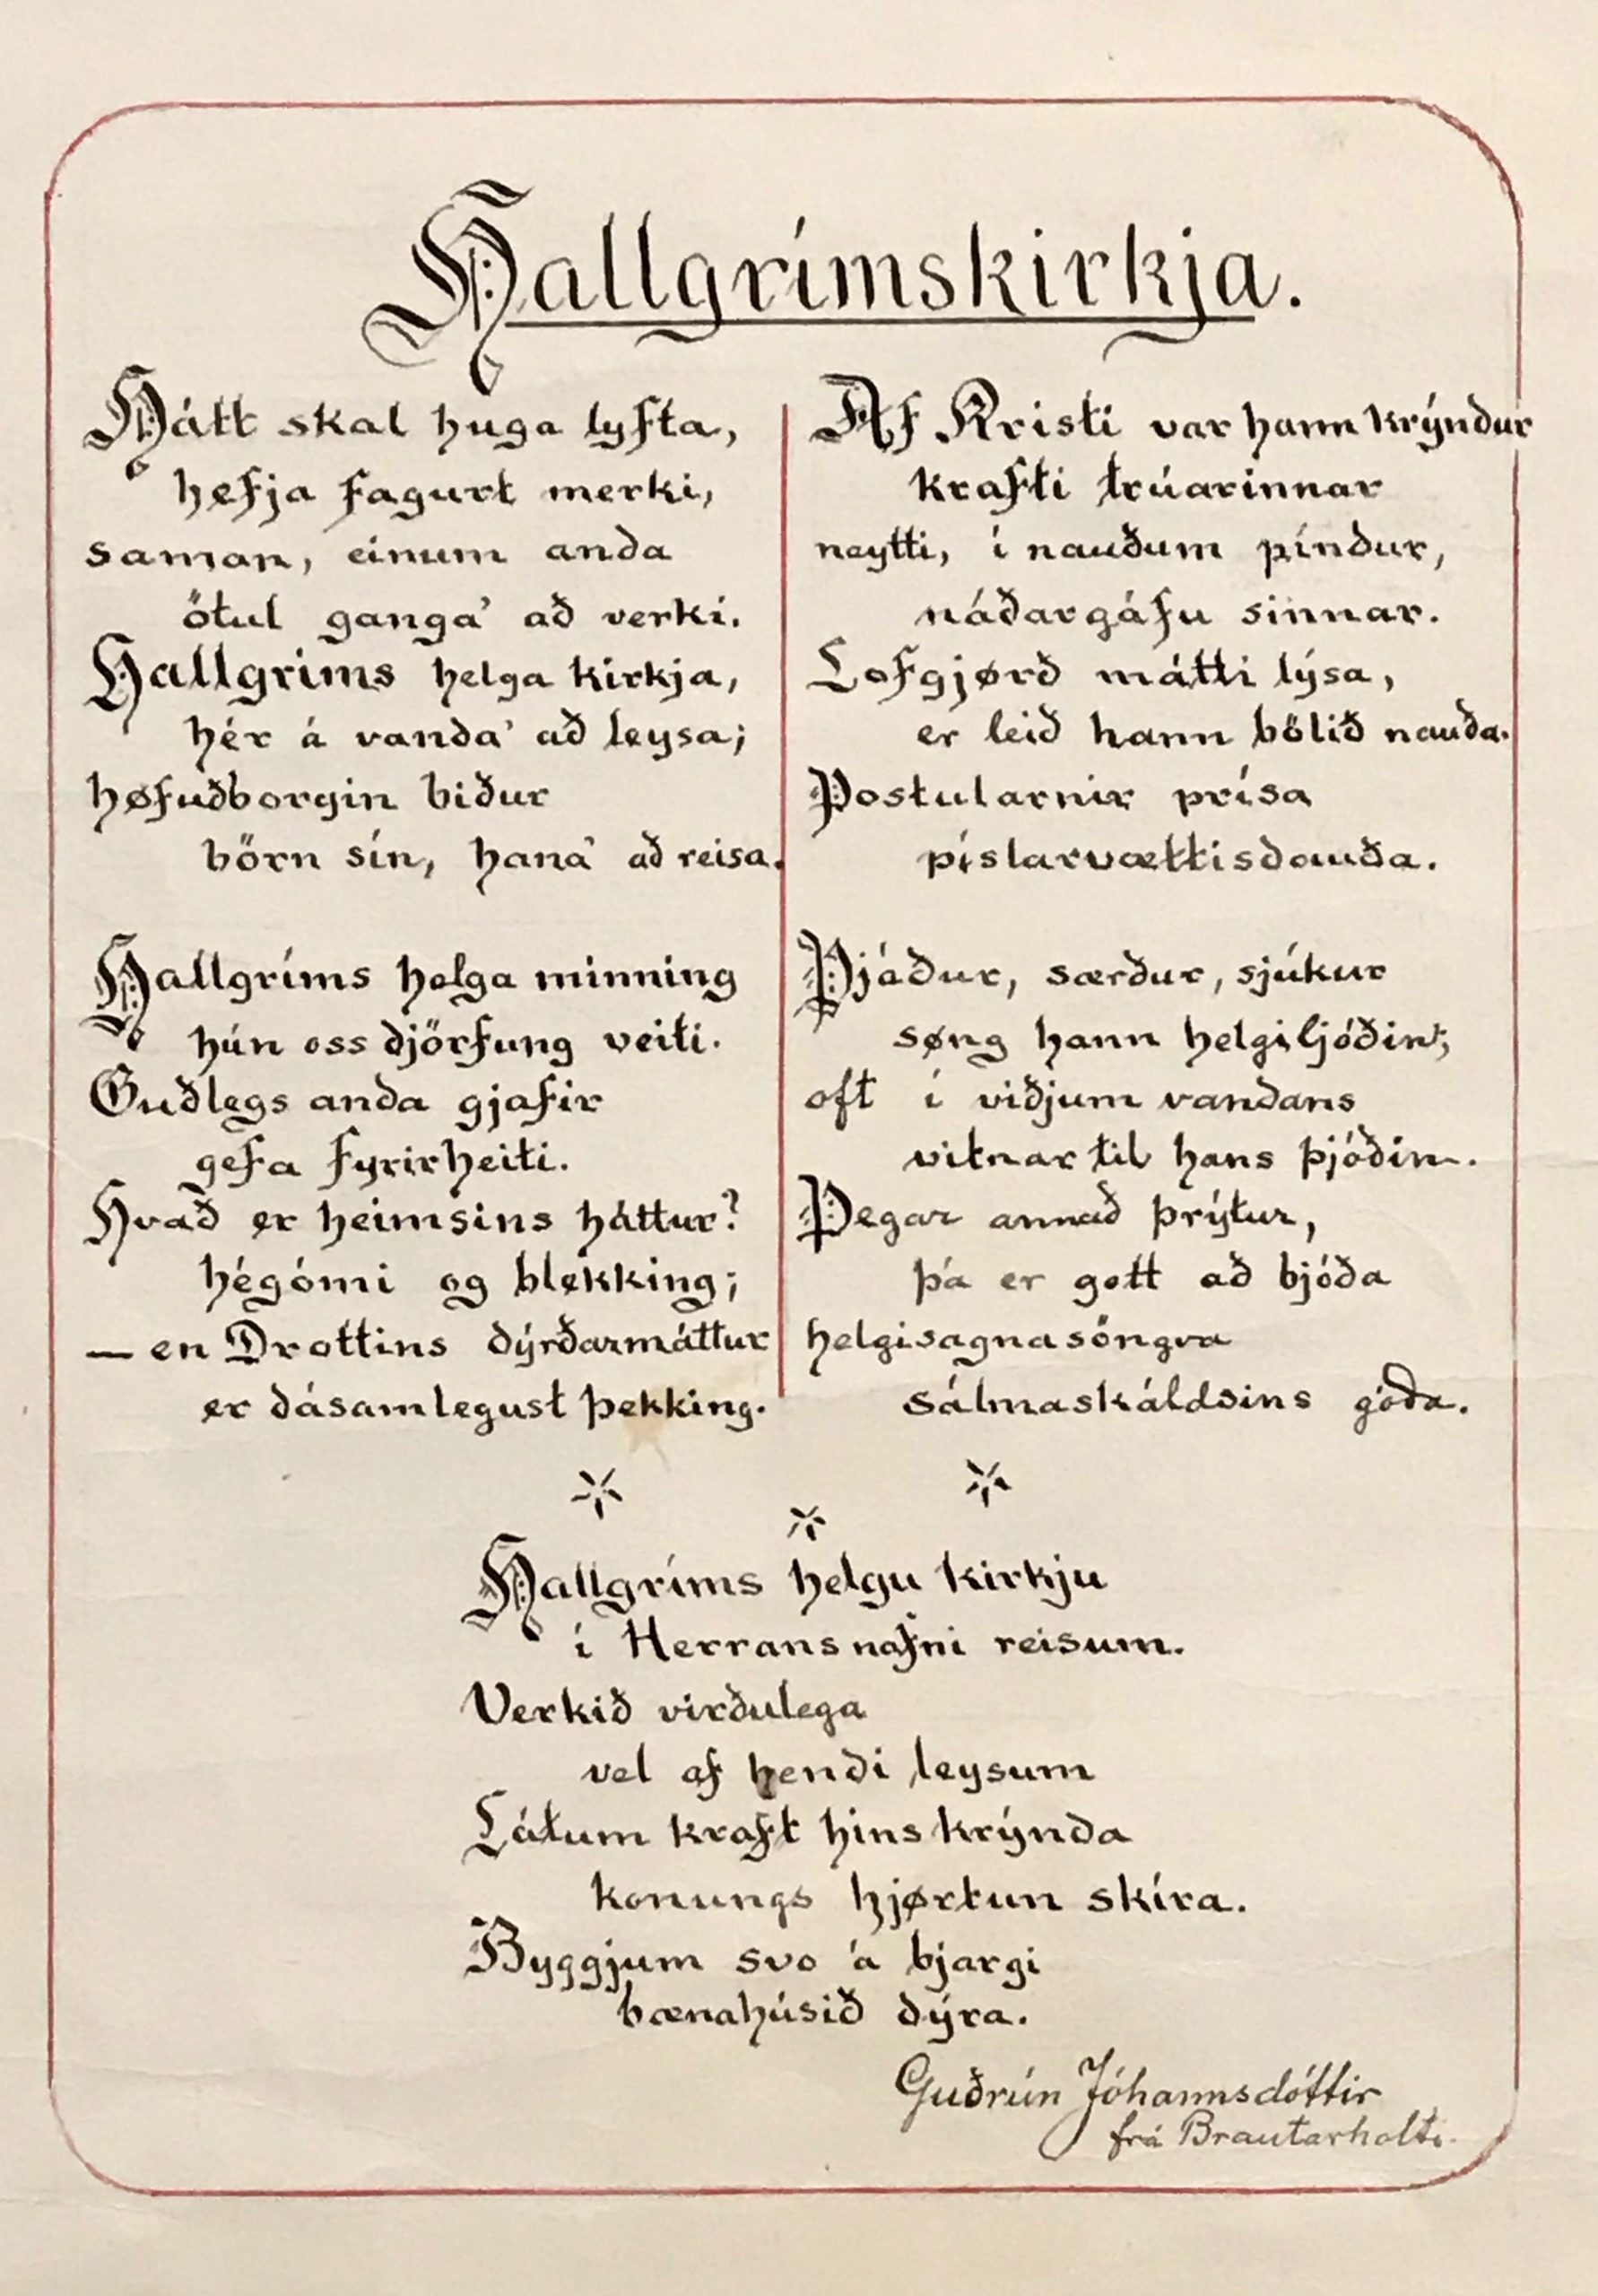 Hallgrímskirkja.
Hátt skal huga lyfta,
hefja fagurt merki,
saman, einum anda
ötul ganga' að verki.
Hallgríms helga kirkja,
hér á vanda' að leysa;
høfuðborgin biður
börn sín, hana' að reisa.
Hallgríms helga minning
hún oss djörfung veiti.
Guðlegs anda gjafir
gefa fyrirheiti.
Hvað er heimsins háttur?
hégómi og blekking;
— en Drottins dýrðarmáttur
er dásamlegust þekking.
Af Kristi var hann krýndur
krafti trúarinnar
neytti, í nauðum píndur,
náðargáfu sinnar.
Lofgjørð mátti lýsa,
er leið hann bölið nauða.
Postularnir prísa
píslarvættisdauða.
Þjáður, særður, sjúkur
søng hann helgiljóðin;
oft í viðjum vandans
vitnar til hans þjóðin.
Þegar annað þrýtur,
þá er gott að bjóða
helgisagnasöngva
sálmaskáldsins góða.
Hallgríms helgu kirkju
í Herrans nafni reisum.
Verkið virðulega
vel af hendi leysum
Látum kraft hins krýnda
konungs hjørtun skíra.
Byggjum svo á bjargi
bænahúsið dýra.
Guðrún Jóhannsdóttir
frá Brautarholti.